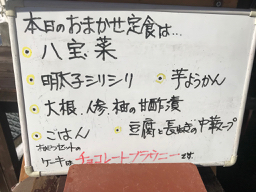 本日のおまかせ定食は…
八宝菜
明太子シリシリ
芋ようかん
大根、人参、柚の甘酢漬
ごはん
豆腐と長ねぎの中華スープ
ケーキは チョコレートブラウニー です